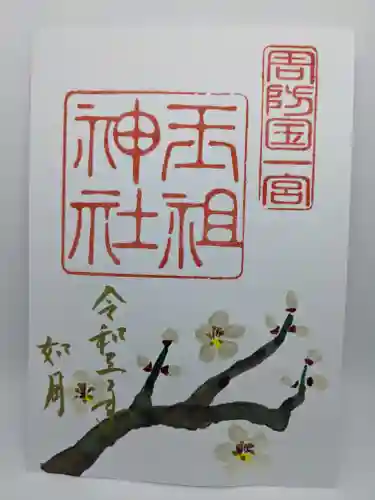 周防国一宮
玉祖
神社
令和五年
如月